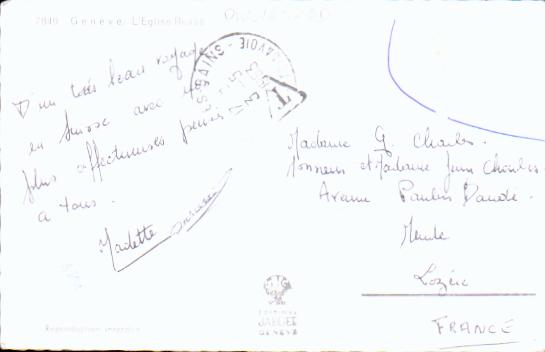 7849 Genève. L'Église Russe
D'un très beau voyage
en Suisse avec
plus affectueuses pensées
a tous.
Madette
S BAINS - SAVOIE
T
Madame G. Charles.
Monsieur et Madame Jean Charles.
Avenue Paulin Daude.
Mende
Lozère
FRANCE
EDITIONS
JAEGER
GENÈVE
Reproduction interdite